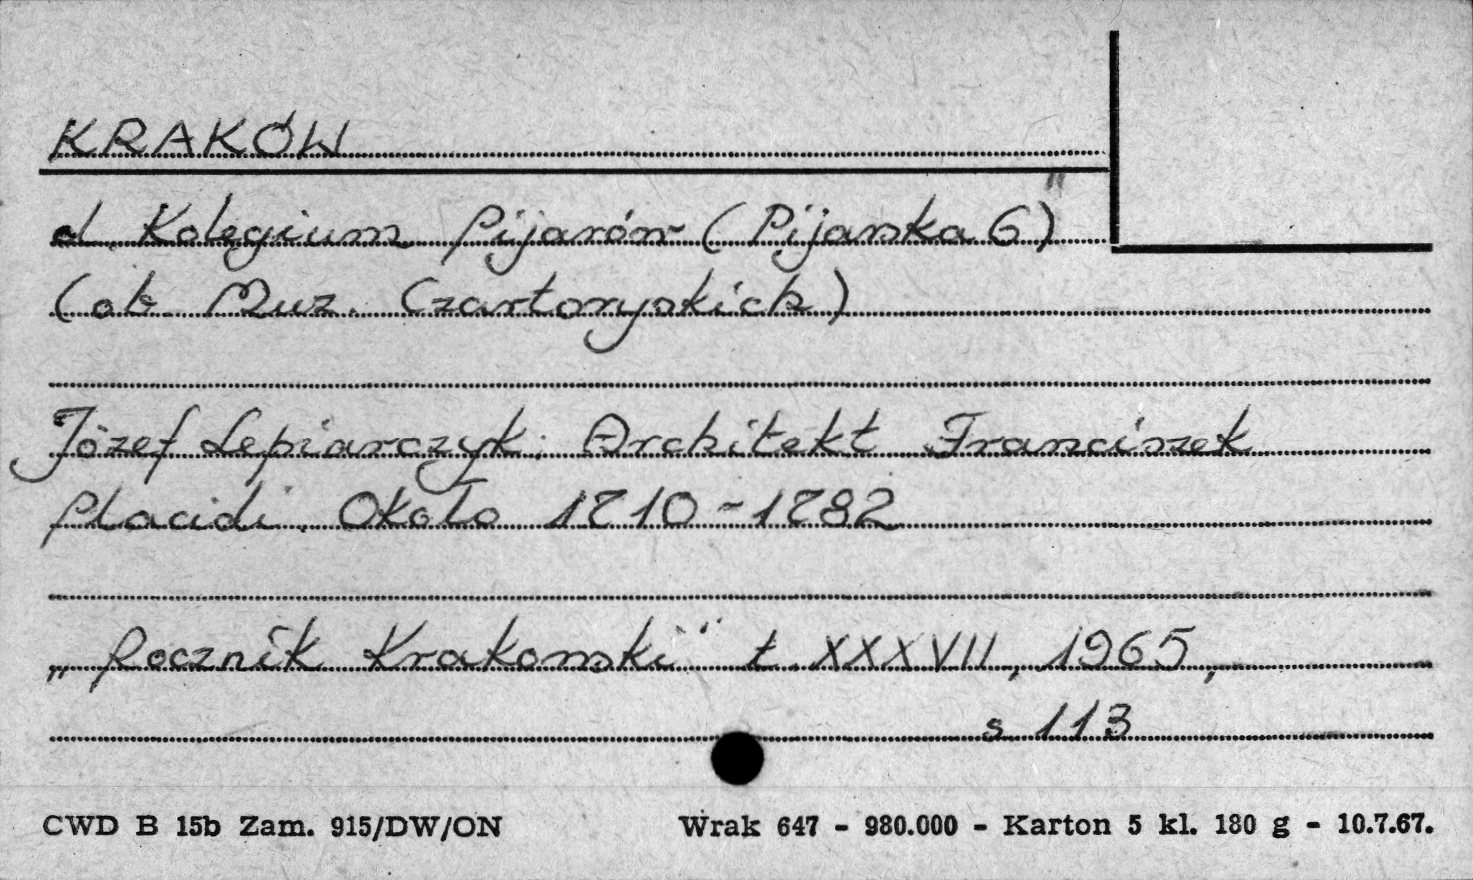 KRAKÓW
d. Kolegium Pijarów (Pijarska 6)"
(ob. Muz. Czartoryskich)
Józef Lepiarczyk: Architekt Franciszek
Placidi. Około 1710-1782
„Rocznik Krakowski" t. XXXVII, 1965,
s. 113
CWD B 15b Zam. 915/DW/ON Wrak 647 - 980.000 - Karton 5 kl. 180 g - 10.7.67.